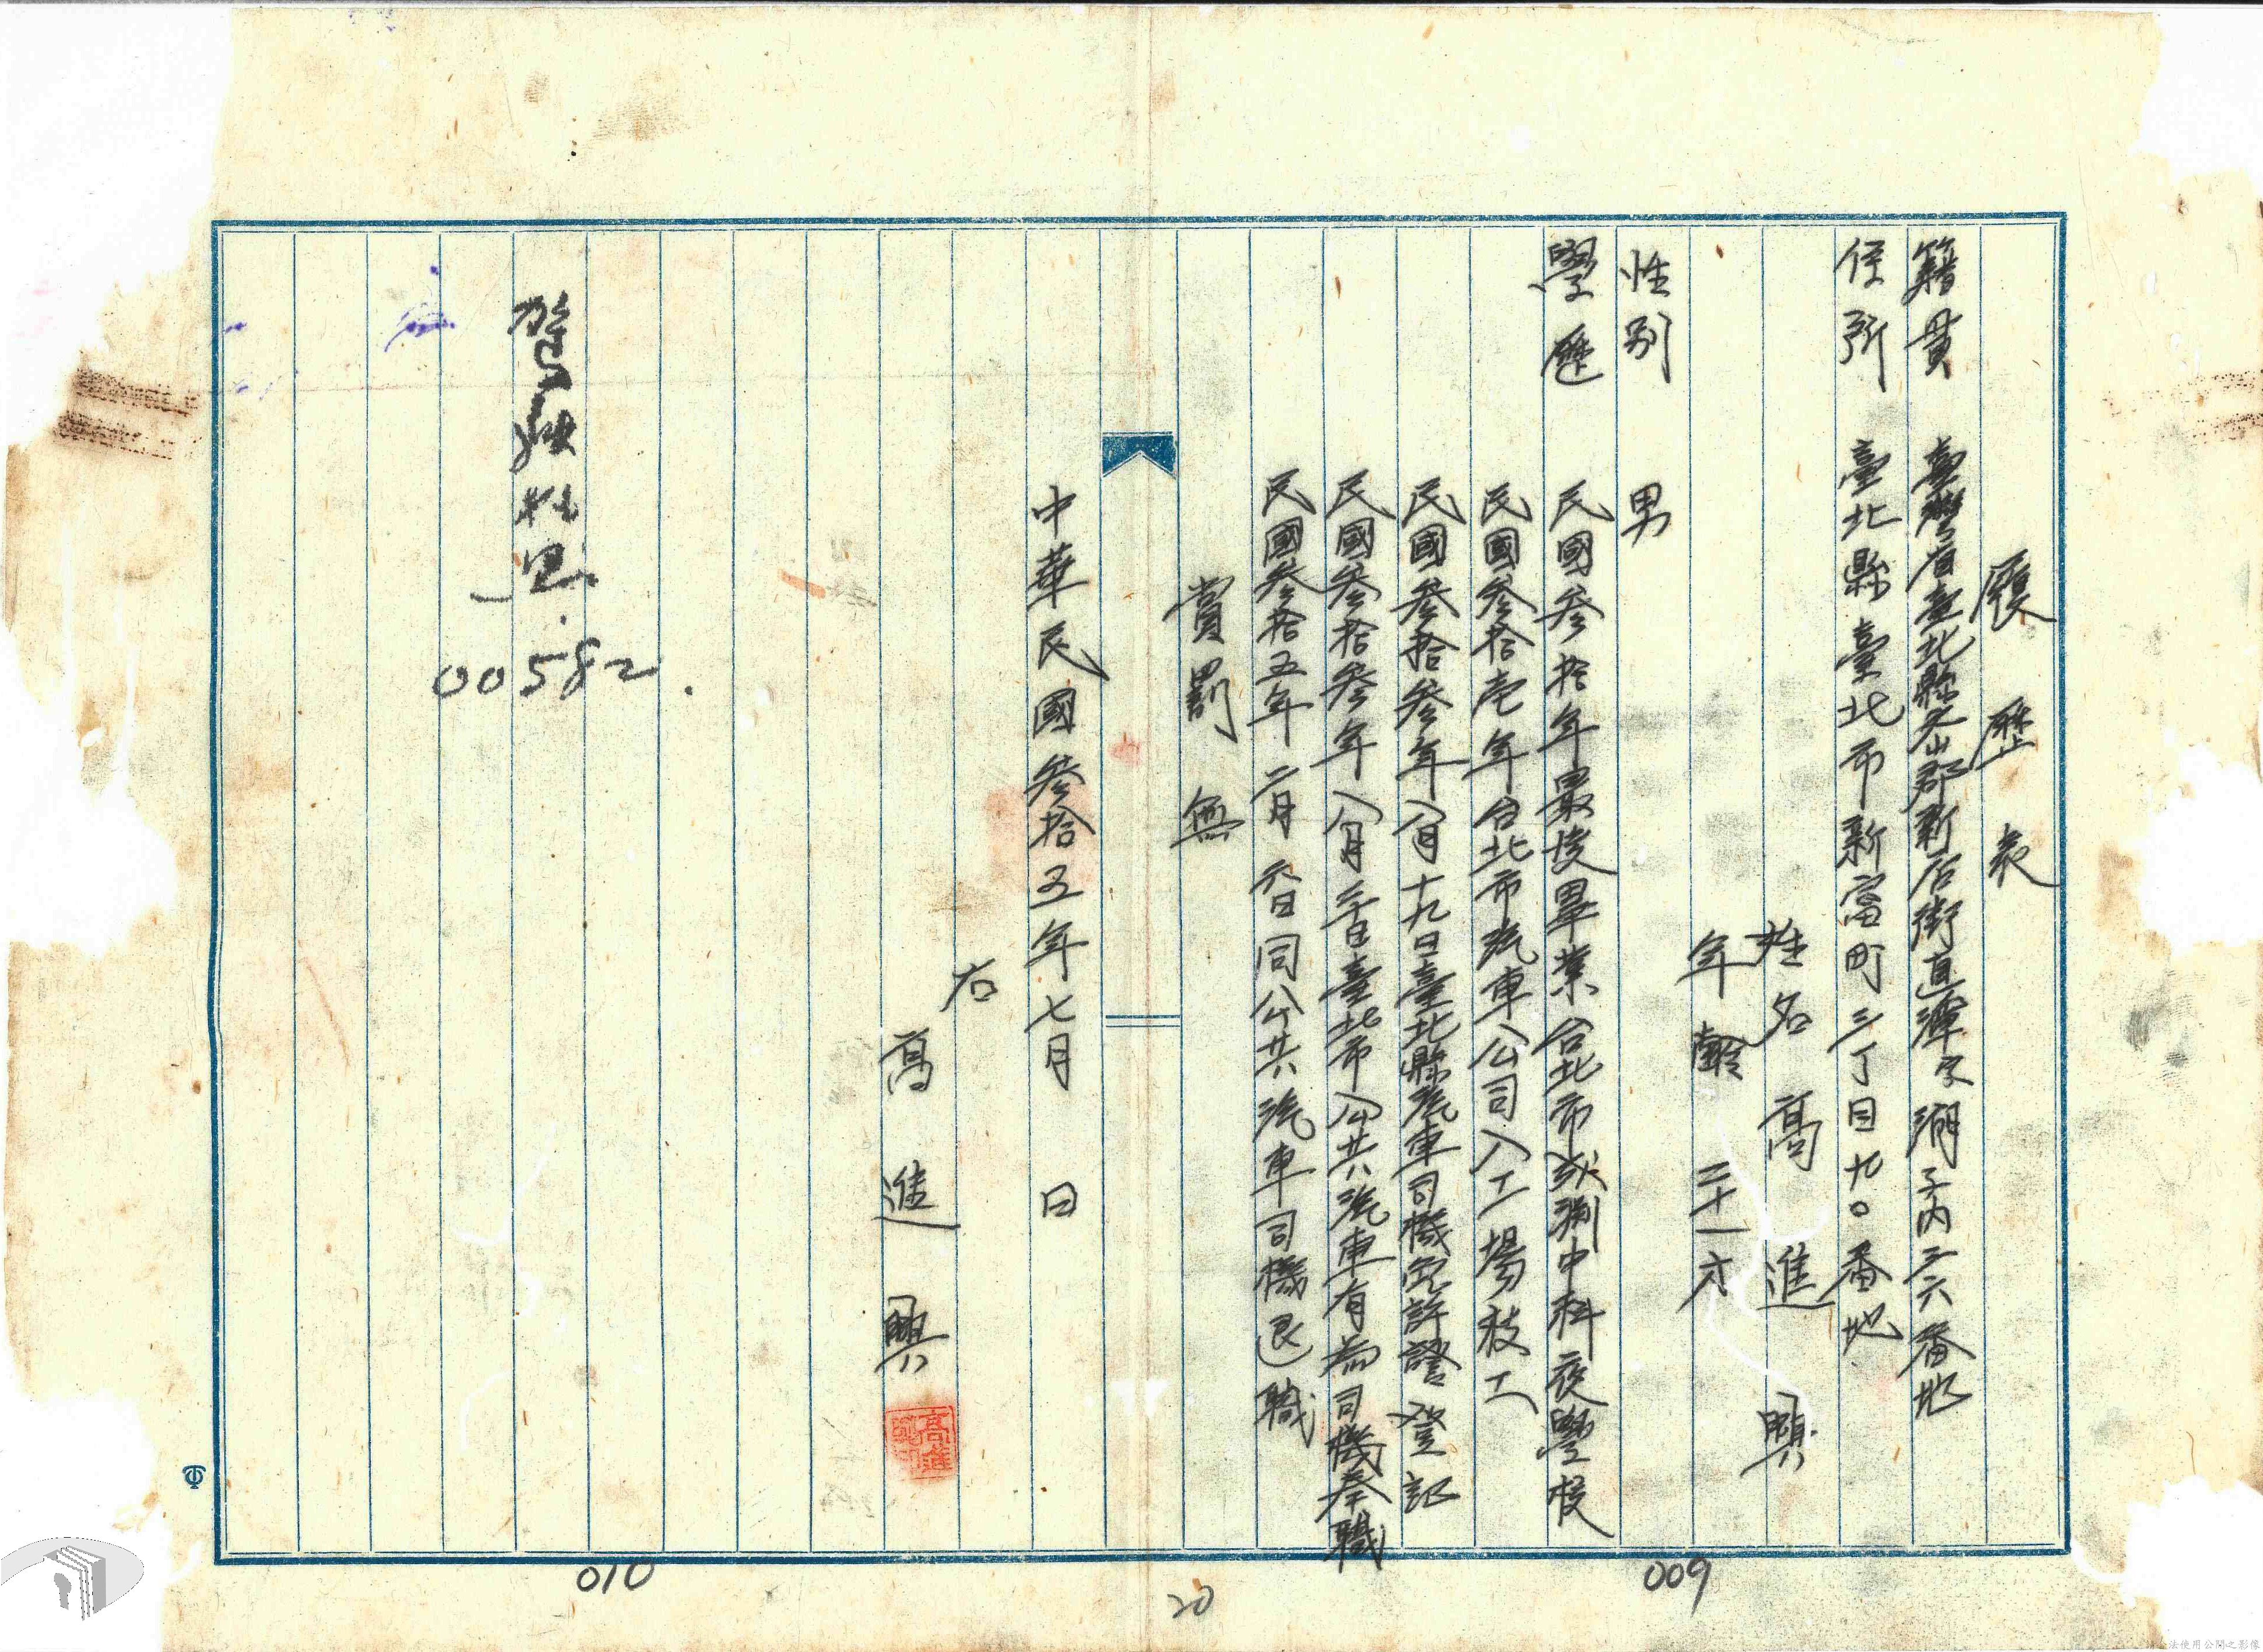 履歷表
籍貫 臺灣省臺北縣文山郡新店街直潭字湖子內三六番地
住所 臺北縣臺北市新富町三丁目九〇番地
姓名 高進興
年齡 二十六
性別 男
學歷 民國參拾年最後畢業台北市成淵中科夜學校
民國參拾壱年台北市汽車公司入工場技工
民國參拾參年八月十九日臺北縣汽車司機免許證登記
民國參拾參年八月 日臺北市公共汽車有為司機奉職
民國參拾五年二月 日同公共汽車司機退職
賞罰 無
中華民國參拾五年七月 日
右
高進興
00582.
010
20
009